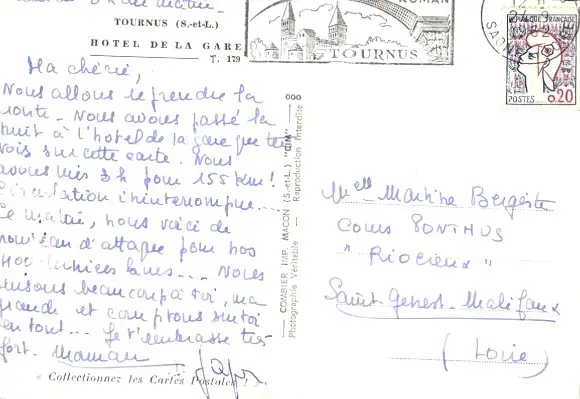 TOURNUS (S.-et-L.)
HOTEL DE LA GARE
T. 179
Ma chérie,
Nous allons reprendre la
route - Nous avons passé la
nuit à l'hotel de la gare que tu
vois sur cette carte. Nous
avons mis 3h pour 155 km !
Circulation ininterrompue...
Ce matin, nous voici de
nouveau d'attaque pour nos
400 kms... Nous
pensons beaucoup à toi, ma
grande et comptons sur toi
en tout... Je t'embrasse très
fort. Maman
« Collectionnez les Cartes Postales ! »
000
COMBIER IMP. MACON (S.-et-L.) "CIM"
Photographie Véritable - Reproduction Interdite
ROMAN
TOURNUS
12 H
REPUBLIQUE FRANÇAISE
POSTES 0,20
Melle Martine Bergeste
Cours PONTHUS
" RIOCREUX "
Saint-Genest-Malifaux
(Loire)